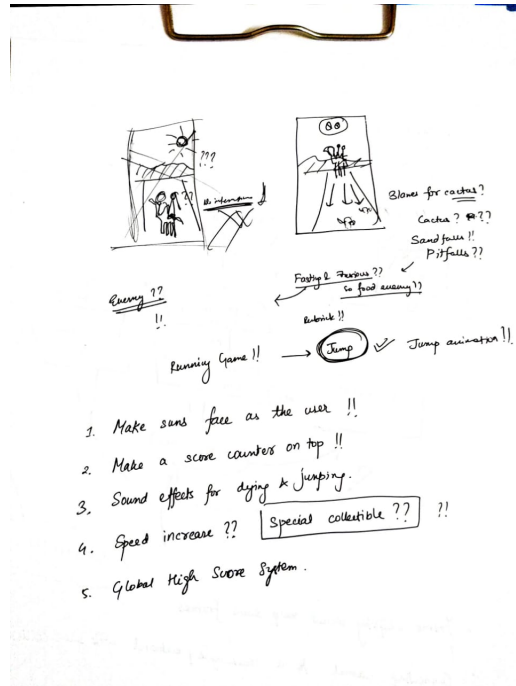 ???
??
Blames for cactus?
Cactus? ??
Sandfalls !!
Pitfalls ??
Fasting & Furious ??
so food enemy !!
Enemy ??
!!
Running Game !!
Jump
Jump animation !!
1. Make suns face as the user !!
2. Make a score counter on top !!
3. Sound effects for dying & jumping.
4. Speed increase ?? Special collectible ?? ?!
5. Global High Score System.